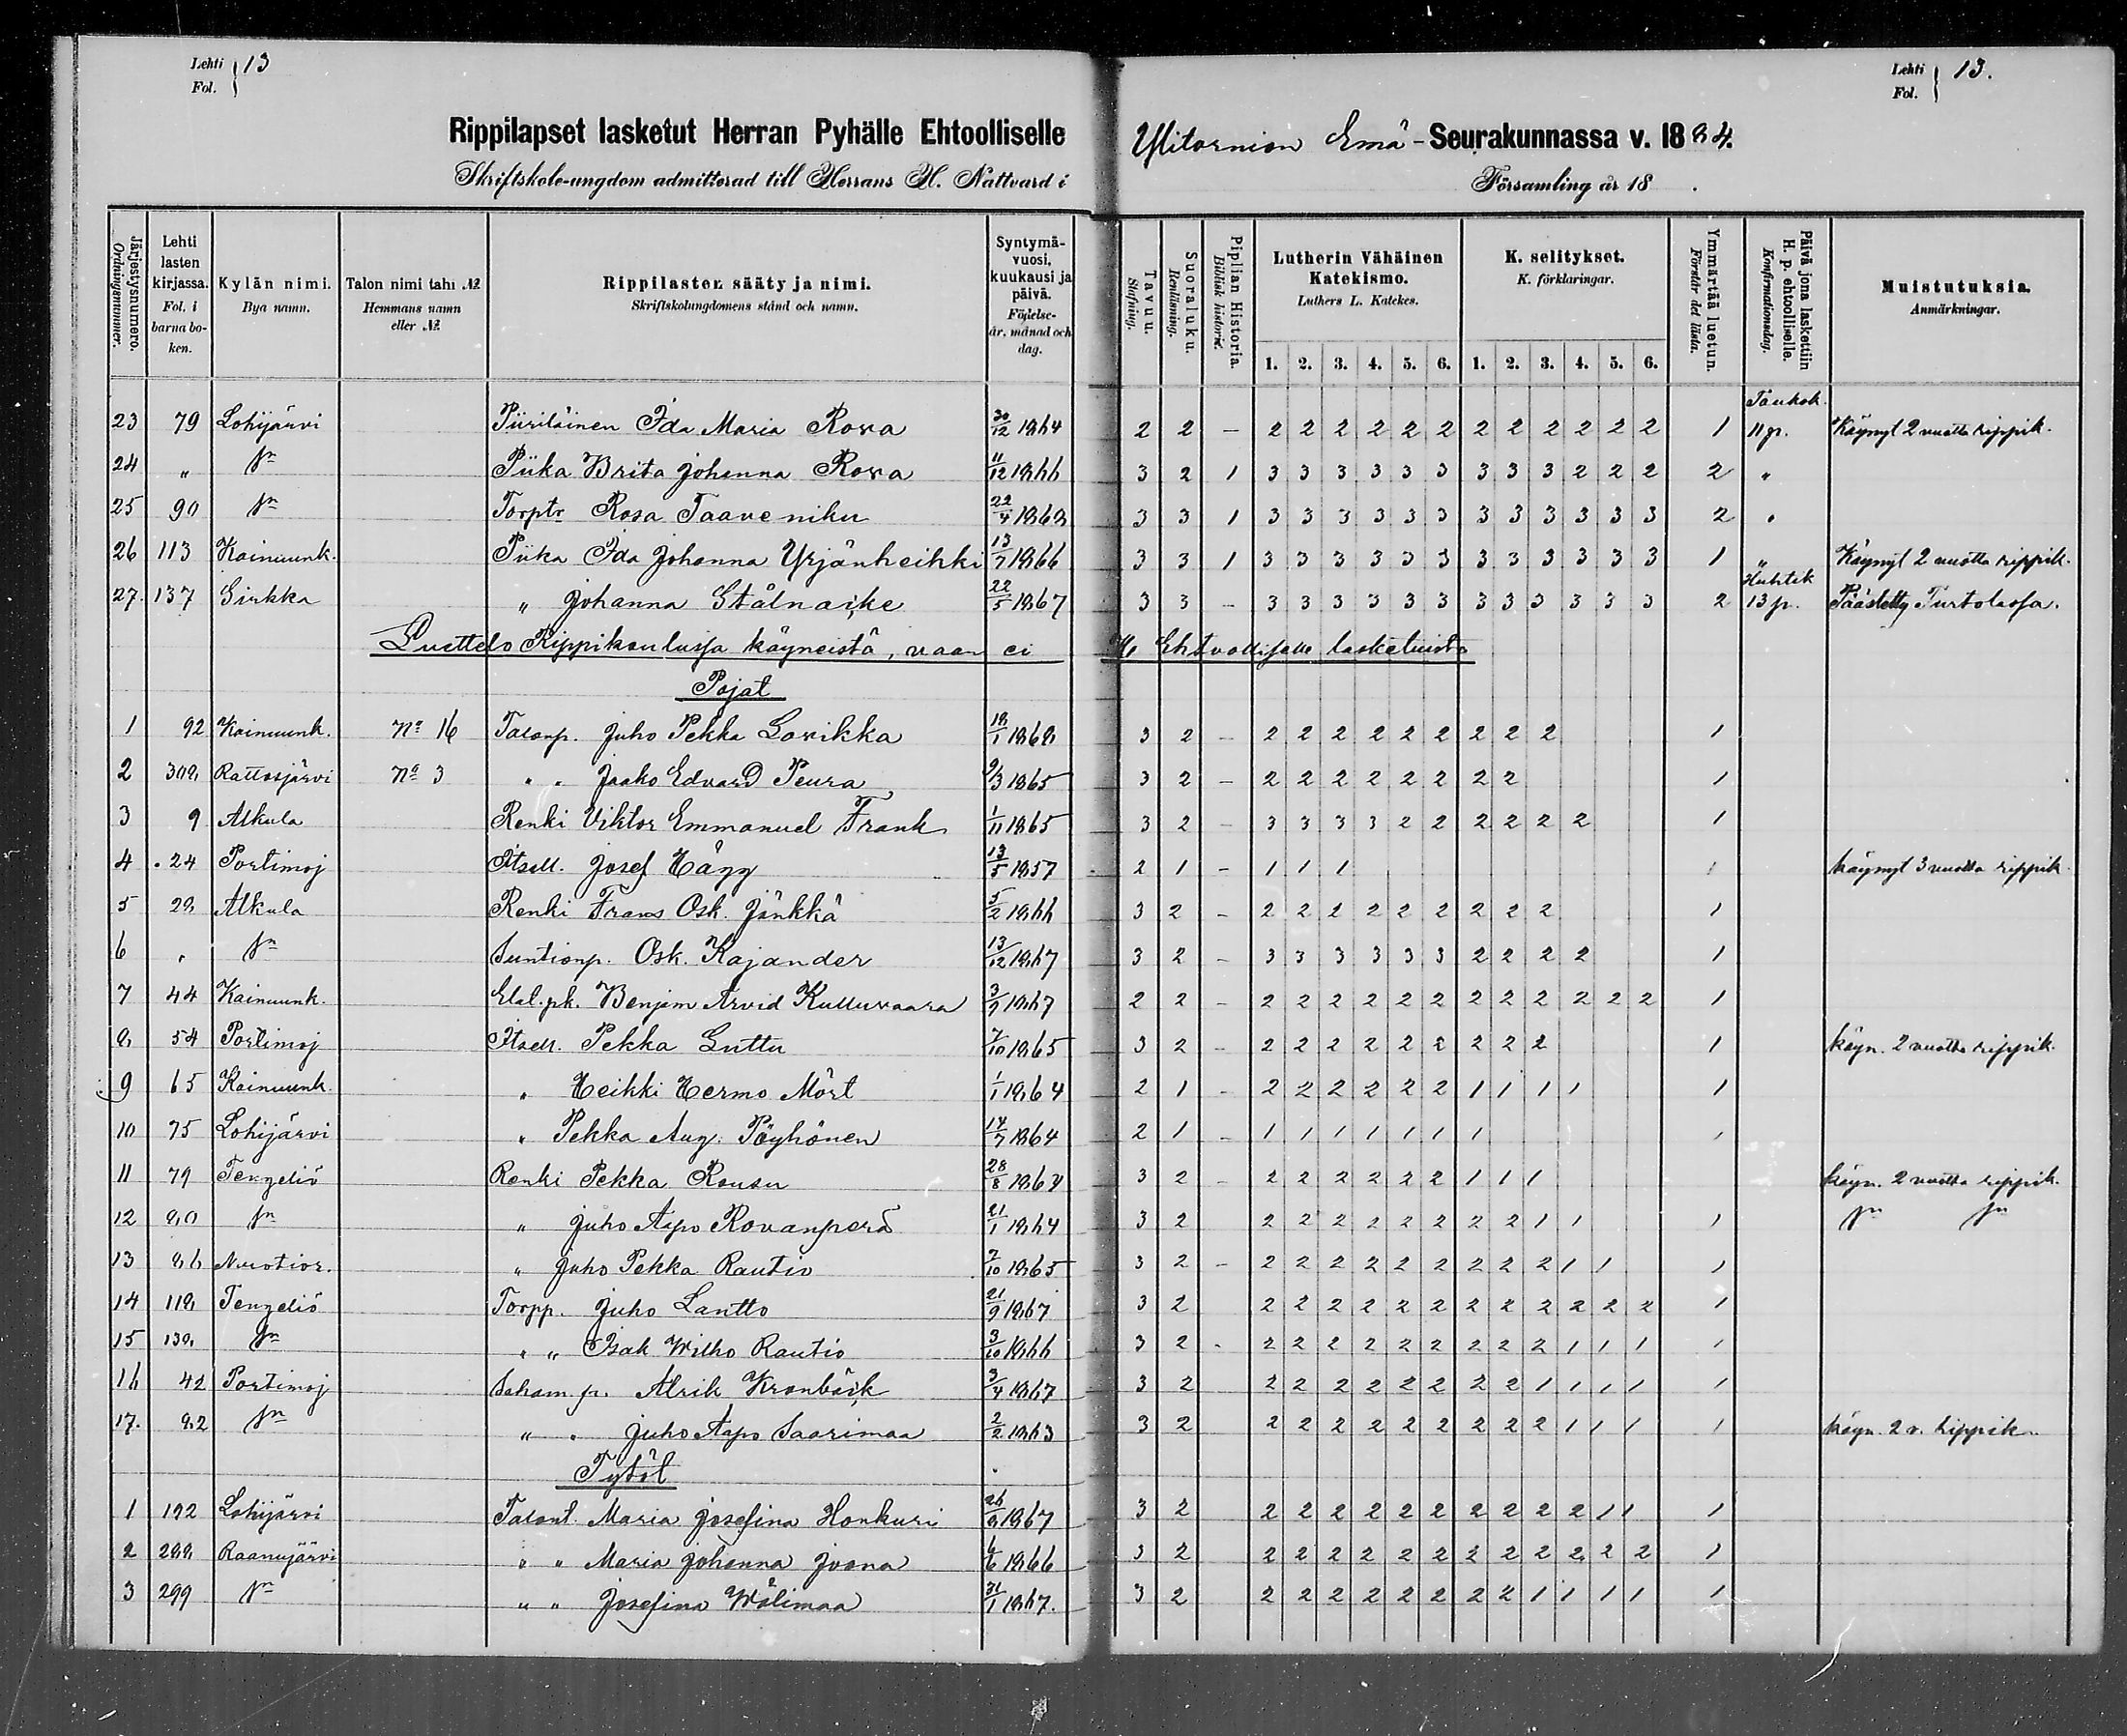 Lehti Fol. } 13
Lehti Fol. } 13.
Rippilapset lasketut Herran Pyhälle Ehtoolliselle Ylitornion Emä-Seurakunnassa v. 1884.
Skriftskole-ungdom admitterad till Herrans H. Nattvard i Församling år 18 .
Järjestysnumero. Ordningsnummer. | Lehti lasten kirjassa. Fol. i barna boken. | Kylän nimi. Bya namn. | Talon nimi tahi № Hemmans namn eller № | Rippilasten sääty ja nimi. Skriftskolungdomens stånd och namn. | Syntymävuosi, kuukausi ja päivä. Födelseår, månad och dag. | Tavuu. Stafning. | Suoraluku. Renläsning. | Piplian Historia. Biblisk historie. | Lutherin Vähäinen Katekismo. Luthers L. Katekes. 1. 2. 3. 4. 5. 6. | K. selitykset. K. förklaringar. 1. 2. 3. 4. 5. 6. | Ymmärtää luetun. Förstår det lästa. | Päivä jona laskettiin H. p. ehtoolliselle. Konfirmationsdag. | Muistutuksia. Anmärkningar.
23 79 Lohijärvi Piiriläinen Ida Maria Rova 30/12 1864 2 2 - 2 2 2 2 2 2 2 2 2 2 2 2 1 Toukok. 11 p. Käynyt 2 vuotta rippik.
24 " Sn Piika Brita Johanna Rova 11/12 1866 3 2 1 3 3 3 3 3 3 3 3 3 2 2 2 2 "
25 90 Sn Torptr Rosa Taaveniku 22/4 1868 3 3 1 3 3 3 3 3 3 3 3 3 3 3 3 2 "
26 113 Kainuunk. Piika Ida Johanna Yrjänheikki 13/7 1866 3 3 1 3 3 3 3 3 3 3 3 3 3 3 3 1 " Käynyt 2 vuotta rippik.
27. 137 Sirkka " Johanna Stålnacke 22/5 1867 3 3 - 3 3 3 3 3 3 3 3 3 3 3 3 2 Huhtik 13 p. Päästetty Turtolassa.
Luettelo Rippikoulussa käyneistä, vaan ei H. Ehtoolliselle lasketuista
Pojat
1 92 Kainuunk. No 16 Talonp. Juho Pekka Lovikka 18/1 1868 3 2 - 2 2 2 2 2 2 2 2 2 1
2 308 Rattosjärvi No 3 " " Jaako Edvard Peura 9/3 1865 3 2 - 2 2 2 2 2 2 2 2 1
3 9 Alkula Renki Viktor Emmanuel Frank 1/11 1865 3 2 - 3 3 3 3 2 2 2 2 2 2 1
4 24 Portimoj Itsell. Josef Hägg 13/5 1857 2 1 - 1 1 1 1 käynyt 3 vuotta rippik
5 28 Alkula Renki Frans Osk. Jänkkä 5/2 1866 3 2 - 2 2 2 2 2 2 2 2 2 1
6 " Sn Suntionp. Osk. Kajander 13/12 1867 3 2 - 3 3 3 3 3 3 2 2 2 2 1
7 44 Kainuunk. Benjam Arvid Kulluvaara 3/9 1867 2 2 - 2 2 2 2 2 2 2 2 2 2 2 2 1
8 54 Portimoj Itsell. Pekka Luttu 7/10 1865 3 2 - 2 2 2 2 2 2 2 2 2 1 käyn. 2 vuotta rippik.
9 65 Kainuunk. " Heikki Hermo Mört 1/1 1864 2 1 - 2 2 2 2 2 2 1 1 1 1 1
10 75 Lohijärvi " Pekka Aug. Pöyhönen 14/7 1864 2 1 - 1 1 1 1 1 1 1 1
11 79 Tengeliö Renki Pekka Rousu 28/8 1864 3 2 - 2 2 2 2 2 2 1 1 1 käyn. 2 vuotta rippik.
12 80 Sn " Juho Aapo Rovanperä 21/1 1864 3 2 2 2 2 2 2 2 2 2 1 1 1 Sn Sn
13 86 Nuotior. " Juho Pekka Rautio 7/10 1865 3 2 - 2 2 2 2 2 2 2 2 2 1 1 1
14 118 Tengeliö Torpp. Juho Lantto 21/9 1867 3 2 2 2 2 2 2 2 2 2 2 2 2 2 1
15 138 Sn " " Isak Wilho Rautio 3/10 1866 3 2 - 2 2 2 2 2 2 2 2 2 1 1 1 1
16 42 Portimoj Alrik Kronbäck 3/4 1867 3 2 2 2 2 2 2 2 2 2 1 1 1 1 1
17. 82 Sn " " Juho Aapo Saarimaa 2/2 1863 3 2 2 2 2 2 2 2 2 2 2 1 1 1 1 käyn. 2 v. rippik.
Tytöt
1 192 Lohijärvi Talont. Maria Josefina Honkuri 26/8 1867 3 2 2 2 2 2 2 2 2 2 2 2 1 1 1
2 288 Raanujärvi " " Maria Johanna Joona 6/6 1866 3 2 2 2 2 2 2 2 2 2 2 2 2 2 1
3 299 Sn " " Josefina Wälimaa 31/1 1867. 3 2 2 2 2 2 2 2 2 2 1 1 1 1 1